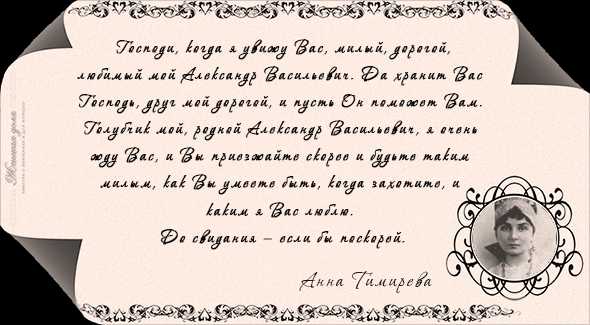 Господи, когда я увижу Вас, милый, дорогой,
любимый мой Александр Васильевич. Да хранит Вас
Господь, друг мой дорогой, и пусть Он поможет Вам.
Голубчик мой, родной Александр Васильевич, я очень
жду Вас, и Вы приезжайте скорее и будьте таким
милым, как Вы умеете быть, когда захотите, и
каким я Вас люблю.
До свидания – если бы поскорей.
Анна Тимирева